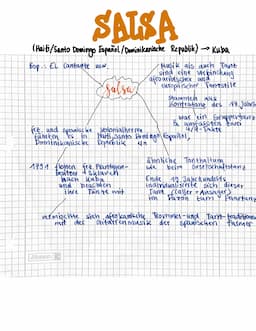 SALSA
(Haiti/Santo Domingo Español/Dominikanische Republik) → Kuba
Bsp.: EL Cantante usw.
Musik als auch Tanz
sind eine Verbindung
afroamerikanischer und
europäischer Tanzstile
Salsa
stammen aus
Kontratanz des 17. Jahrh
war ein Gruppentanz
& umfassten zwei
2/4-Takte
frz. und spanische Kolonialherren
führten es in Haiti, Santo Domingo Español,
Dominikanische Republik ein
1791 flohen frz. Plantagen-
besitzer + Sklaven
nach Kuba
und brachten
ihre Tänze mit
ähnliche Tanzhaltung
wie beim Gesellschaftstanz
Ende 19. Jahrhunderts
individualisierte sich dieser
Tanz
im Paron zum Paartanz
vermischte sich afrokubanische Trommel- und Tanztraditionen
mit der Gitarrenmusik der spanischen Farmer